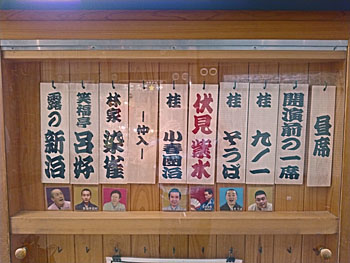 昼席
開演前の一席
桂 九ノ一
桂 そうば
伏見 紫水
桂 小春團治
―仲入―
林家 染雀
笑福亭 呂好
露の新治